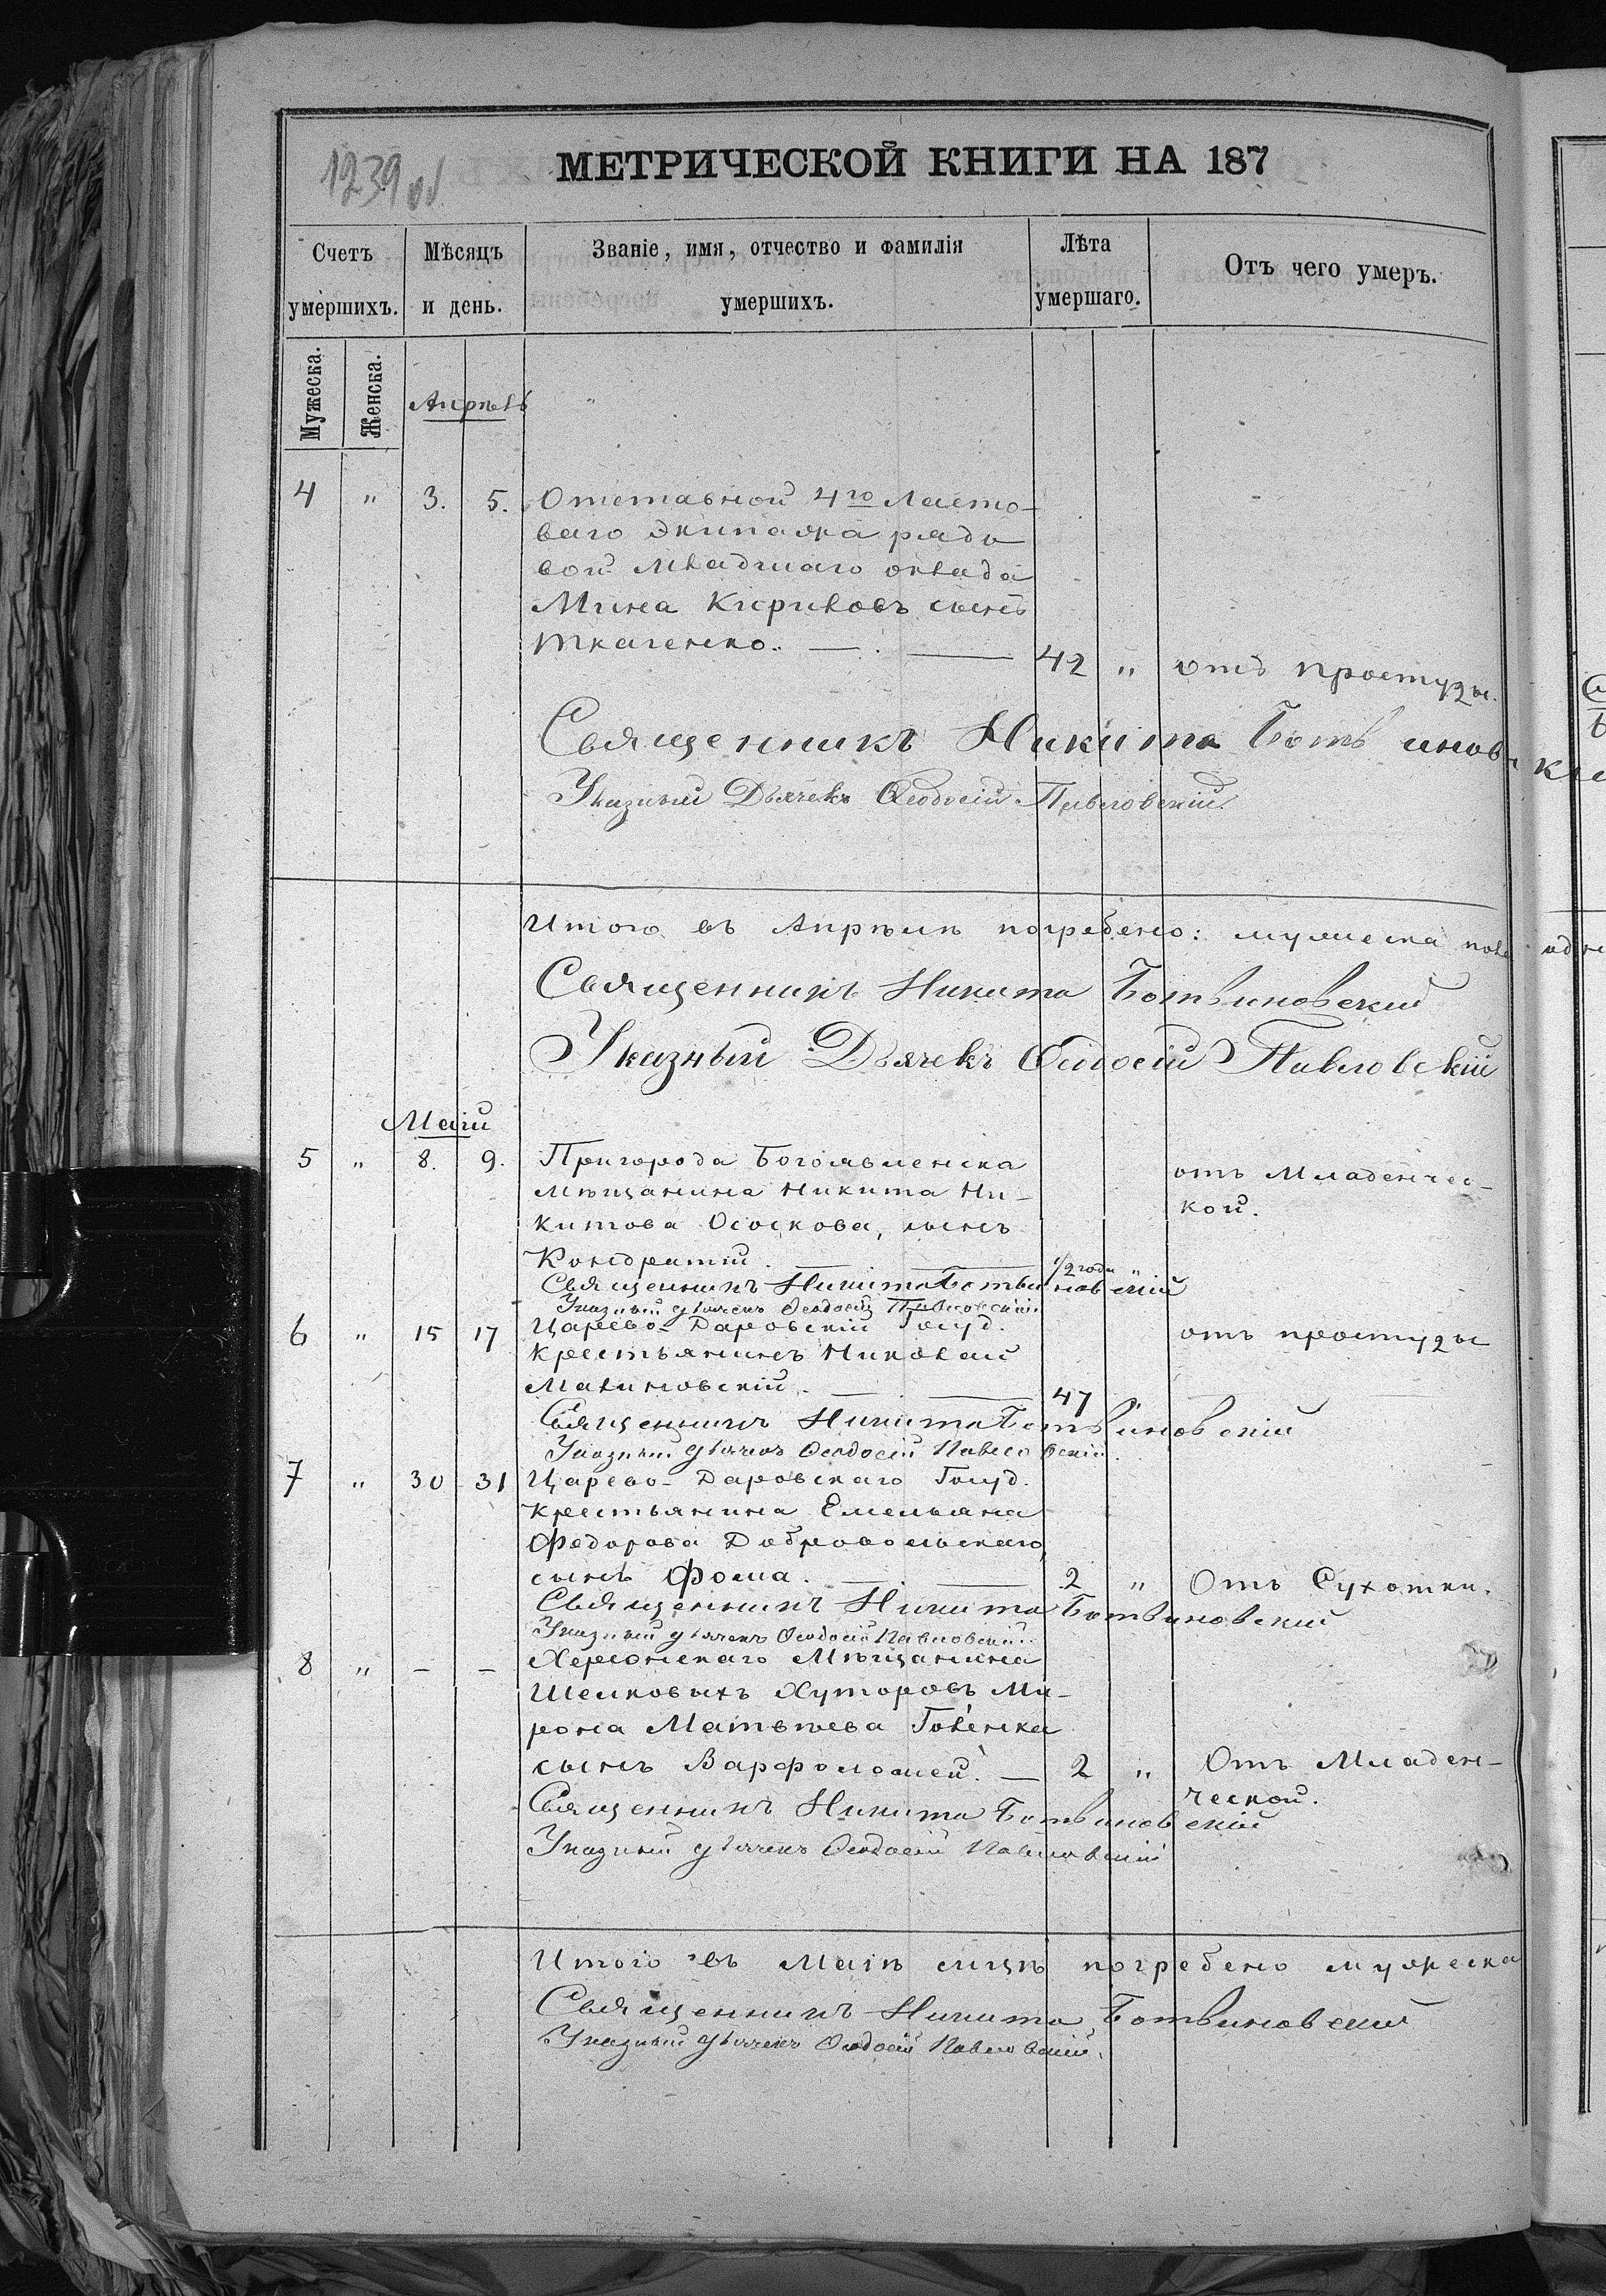 1239 об
МЕТРИЧЕСКОЙ КНИГИ НА 187
Счетъ умершихъ.
Мужеска.
Женска.
Мѣсяцъ и день.
Званіе, имя, отчество и фамилія
умершихъ.
Лѣта умершаго.
Отъ чего умеръ.
Апрѣль
4 " 3. 5. Отставной 4го Ласто-
ваго экипажа рядо
вой младшаго оклада
Мина Кириловъ сынъ
Ткаченко. — . — 42 " отъ простуды.
Священникъ Никита Ботвиновскій
Указный Дьячекъ Ѳеодосій Павловскій.
Итого въ Апрѣлѣ погребено: мужеска пола
Священникъ Никита Ботвиновскій
Указный Дьячекъ Ѳеодосій Павловскій
Маій
5 " 8. 9. Пригорода Богоявленска отъ Младенчес-
мѣщанина Никита Ни- кой.
китова Ососкова, сынъ
Кондратій. — 1/2 года "
Священникъ Никита Ботвиновскій
Указный дьячекъ Ѳеодосій Павловскій.
6 " 15 17 Царево-Даровскій Госуд. отъ простуды
крестьянинъ Николай
Малиновскій. — . — 47
Священникъ Никита Ботвиновскій
Указный дьячекъ Ѳеодосій Павловскій.
7 " 30 31 Царево-Даровскаго Госуд.
крестьянина Емельяна
Федорова Добровольскаго,
сынъ Фома. — . — 2 " Отъ Сухотки.
Священникъ Никита Ботвиновскій
Указный дьячекъ Ѳеодосій Павловскій.
8 " – – Херсонскаго Мѣщанина
Шелковыхъ Хуторовъ Ми-
рона Матвѣева Голенка
сынъ Варфоломей. — 2 " Отъ Младен-
ческой.
Священникъ Никита Ботвиновскій
Указный дьячекъ Ѳеодосій Павловскій
Итого въ Маіѣ мцѣ погребено мужеска
Священникъ Никита Ботвиновскій
Указный дьячекъ Ѳеодосій Павловскій.